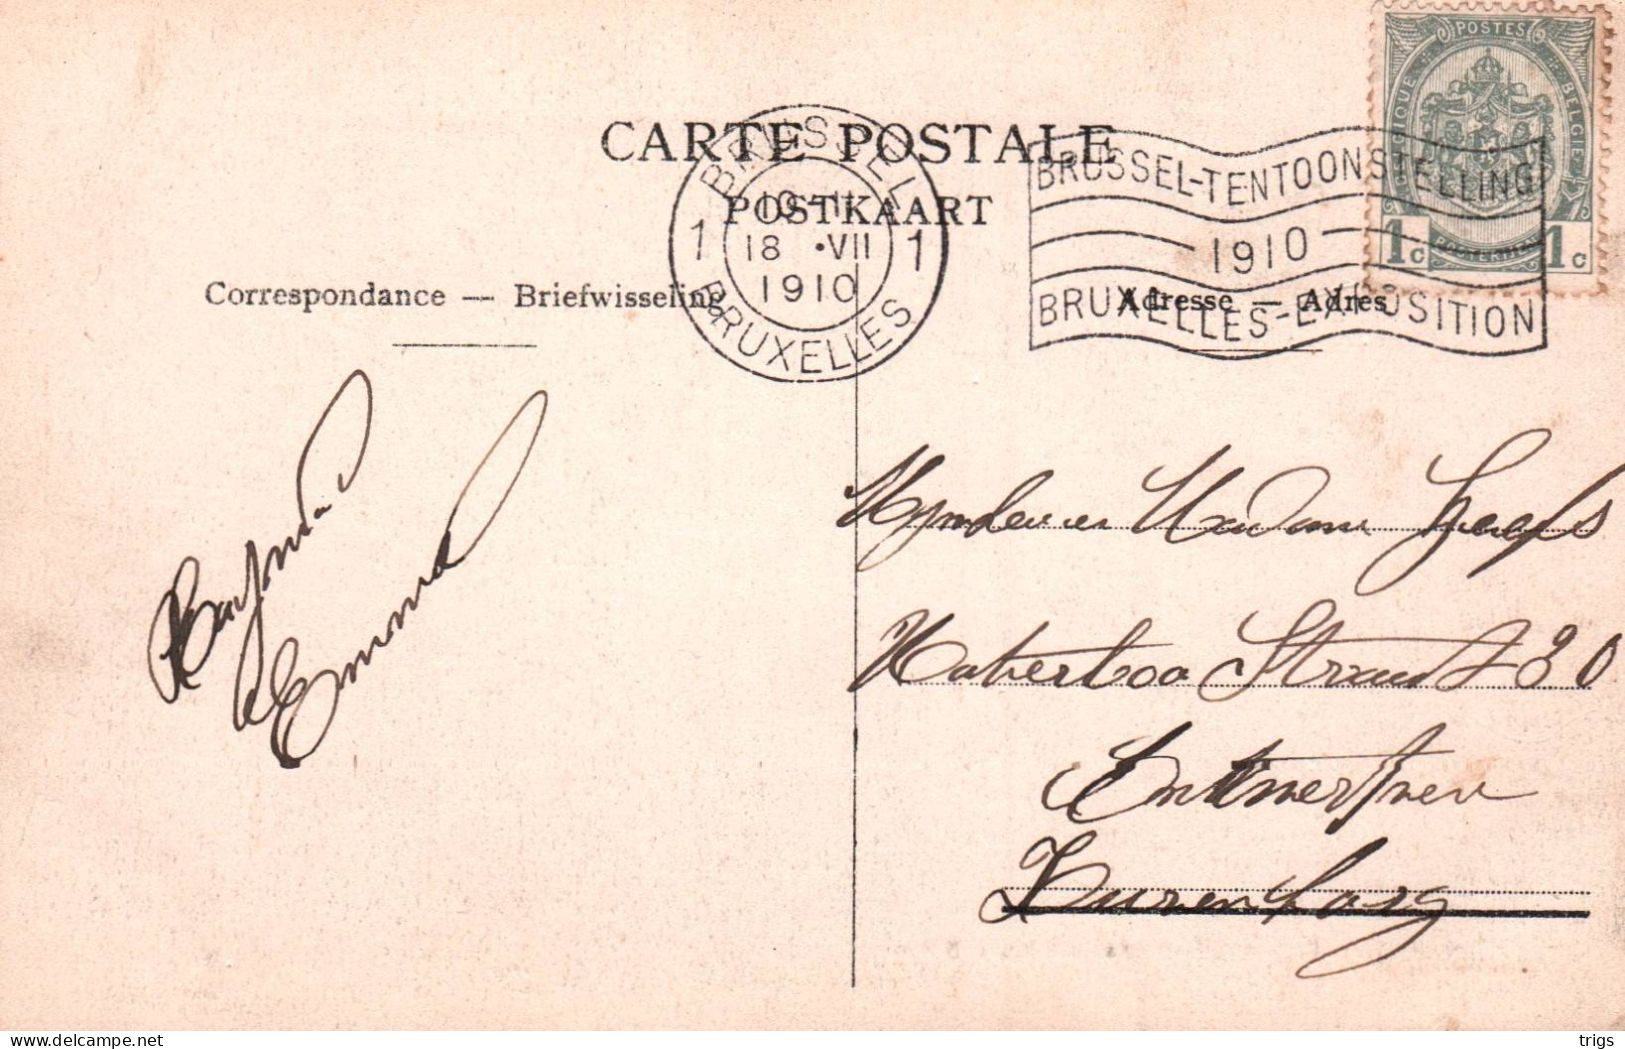 POSTES
BELGIQUE
BELGIE
1c 1c
CARTE POSTALE
POSTKAART
BRUSSEL
10-11
1 18 • VII 1
1910
BRUXELLES
BRUSSEL-TENTOONSTELLING
1910
BRUXELLES-EXPOSITION
Correspondance — Briefwisseling
Adresse — Adres
Emma
Mynheer en Madam
Waterloo Straat 30
Antwerpen
Zurenborg
delcampe.net
trigs